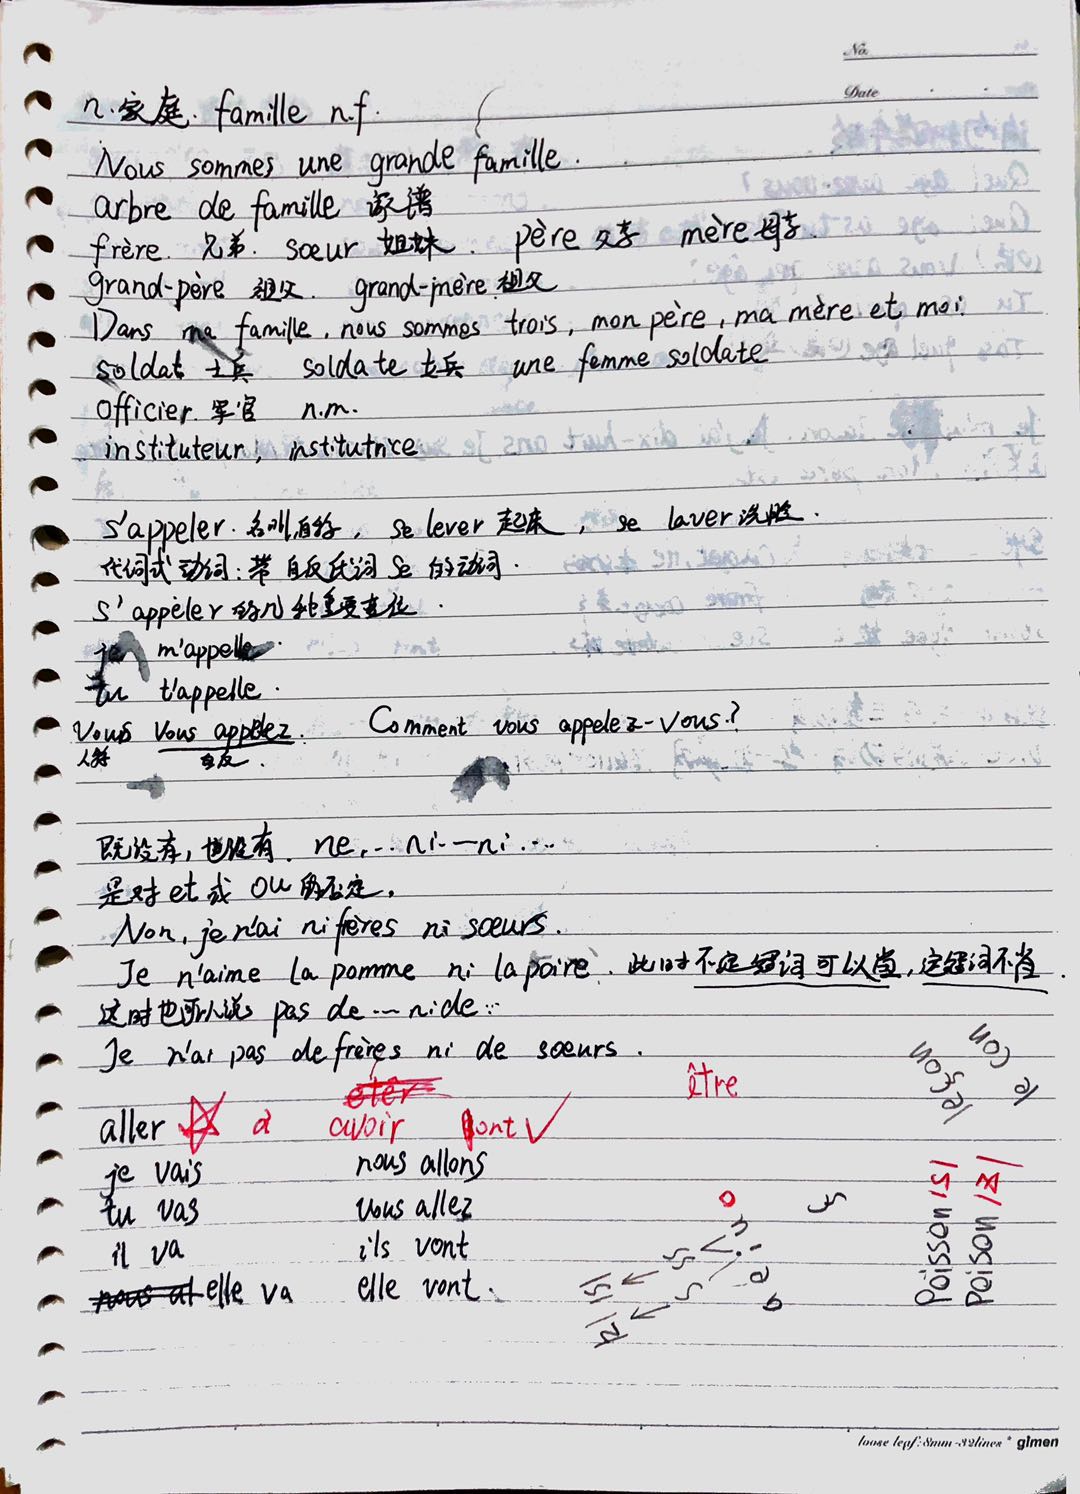 No.
Date
n.家庭. famille n.f.
Nous sommes une grande famille.
arbre de famille 家谱
frère. 兄弟. sœur 姐妹. père 父亲 mère 母亲.
grand-père 祖父. grand-mère 祖父
Dans ma famille, nous sommes trois, mon père, ma mère et moi.
soldat 士兵 soldate 女兵 une femme soldate
officier 军官 n.m.
instituteur, institutrice
s'appeler. 名叫,自称, se lever 起来, se laver 洗脸.
代词式动词:带自反代词 se 的动词.
s'appeler 的几种重要变位.
je m'appelle.
tu t'appelle.
vous vous appelez. Comment vous appelez-vous?
人称 自反.
既没有,也没有. ne...ni—ni...
是对 et 或 ou 的否定.
Non, je n'ai ni frères ni sœurs.
Je n'aime la pomme ni la poire. 此时不定冠词可以省,定冠词不省
这时也可以说: pas de ... ni de ...
Je n'ai pas de frères ni de sœurs.
être
aller à avoir font
je vais nous allons
tu vas vous allez
il va ils vont
elle va elle vont.
le con
leçon
poisson /s/
poison /z/
o
n
i
a
s
s
/s/
/z/
loose leaf: 8mm-32lines * glmen